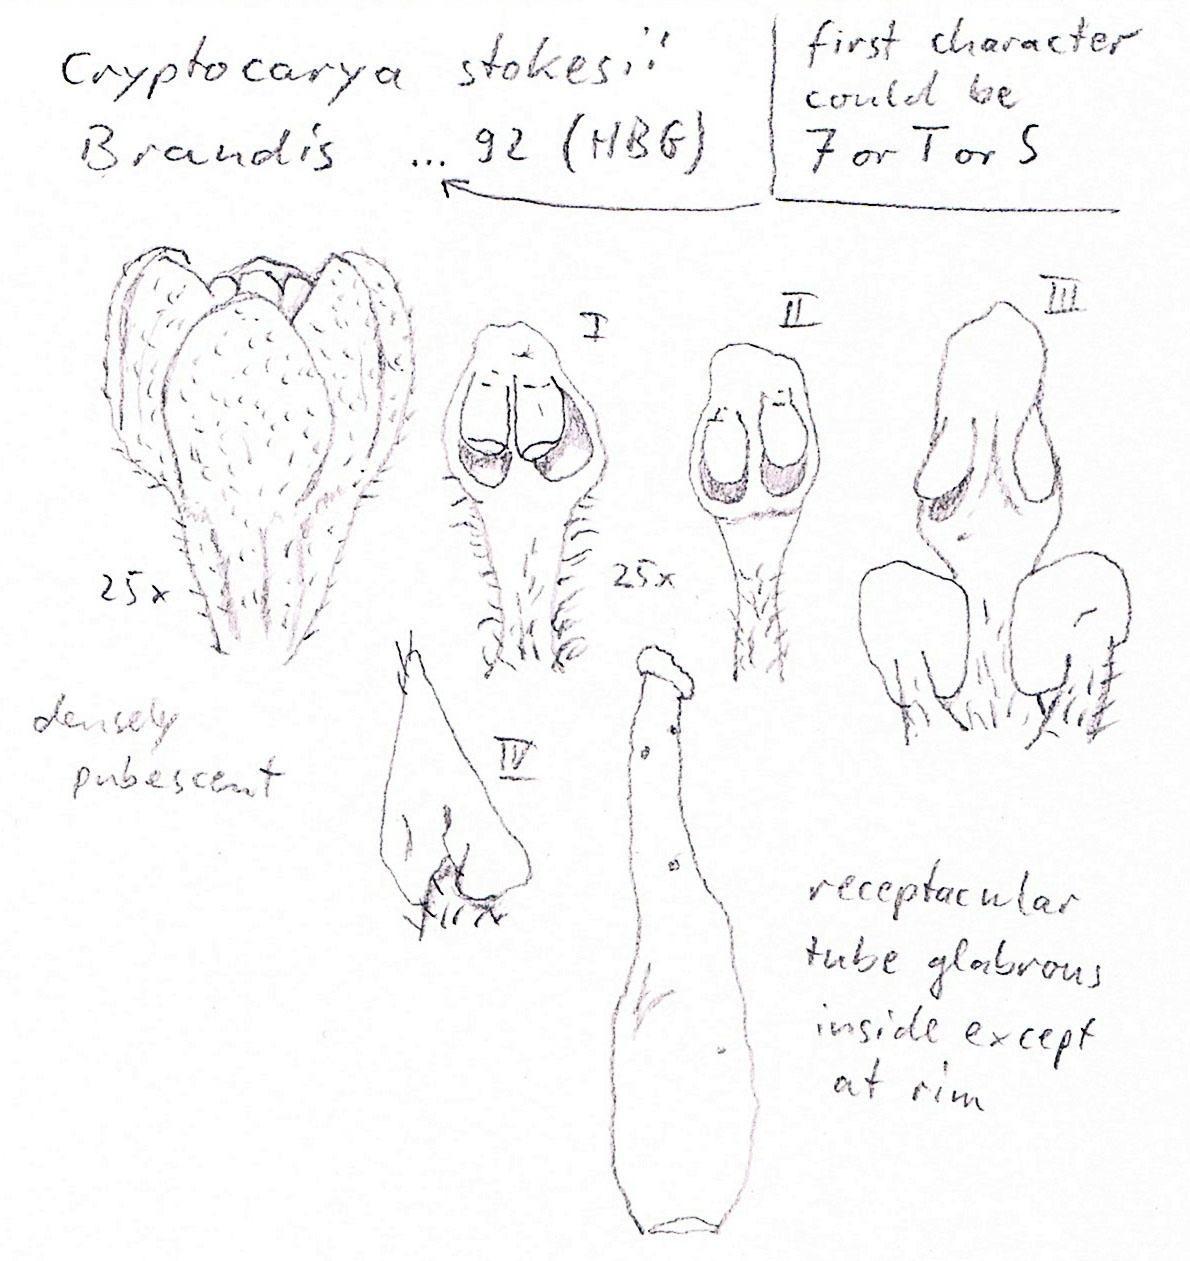 Cryptocarya stokesii
Brandis ... 92 (HBG)
first character
could be
7 or T or S
I
II
III
25x
25x
densely
pubescent
IV
receptacular
tube glabrous
inside except
at rim